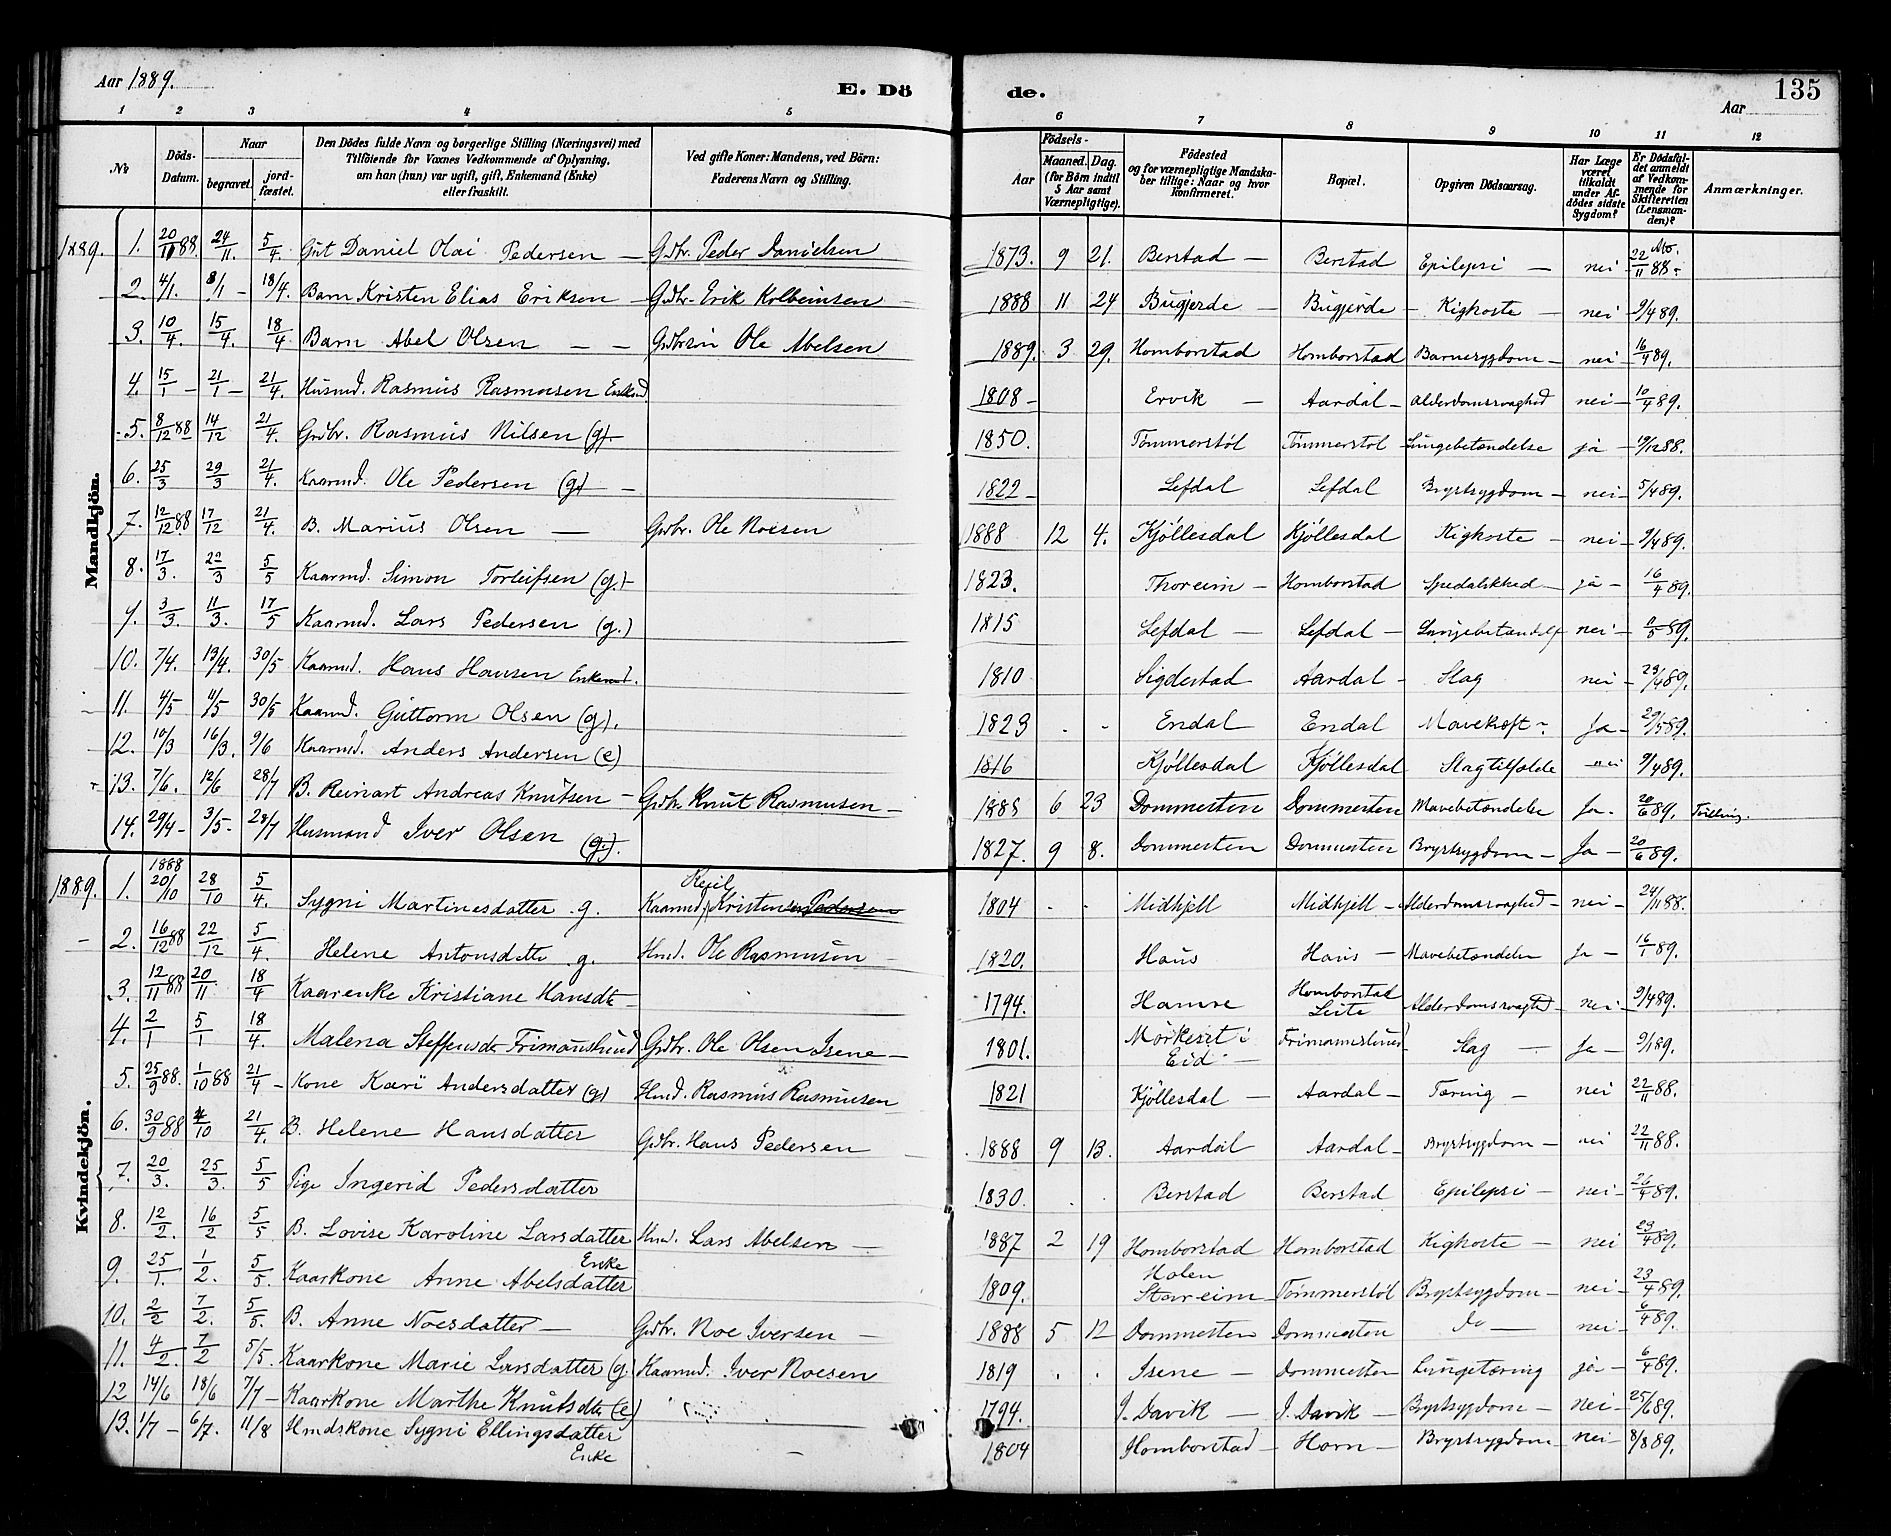 Aar 1889.
E. Dö
de.
Aar
135
1 2 3 4 5
6 7 8 9 10 11 12
No
Döds-Datum.
Naar
begravet.
jord-fæstet.
Den Dödes fulde Navn og borgerlige Stilling (Næringsvei) med
Tilföiende for Voxnes Vedkommende af Oplysning,
om han (hun) var ugift, gift, Enkemand (Enke)
eller fraskilt.
Ved gifte Koner: Mandens, ved Börn:
Faderens Navn og Stilling.
Födsels-
Aar
Maaned. Dag.
(for Börn indtil
5 Aar samt
Værnepligtige).
Födested
og for værnepligtige Mandska-
ber tillige: Naar og hvor
Konfirmeret.
Bopæl.
Opgiven Dödsaarsag.
Har Læge
været
tilkaldt
under Af-
dödes sidste
Sygdom?
Er Dödsfal-
det anmeldt
af Vedkom-
mende for
Skifteretten
(Lensman-
den)?
Anmærkninger.
Mandkjön.
1889. 1. 20/11 88 24/11. 5/4. Gut Daniel Olai Pedersen — Gdbr. Peder Danielsen 1873. 9 21. Berstad — Berstad Epilepsi — nei 22/11 88.
2. 4/1. 8/1 — 18/4. Barn Kristen Elias Eriksen — Gdbr. Erik Kolbeinsen 1888 11 24 Bugjerde — Bugjerde — Kighoste — nei 9/4 89.
3. 10/4. 15/4. 18/4 Barn Abel Olsen — — Gdbrsøn Ole Abelsen 1889. 3 29. Homborstad Homborstad Barnesygdom — nei 16/4 89.
4. 15/1 — 21/1 — 21/4. Husmd. Rasmus Rasmusen Enkmd. 1808 — Ervik — Aardal — Alderdomssvaghed nei — 10/4 89.
5. 8/12 88 14/12 21/4. Grdbr. Rasmus Nilsen (g). 1850. Tömmerstöl Tömmerstöl Lungebetændelse ja — 19/12 88.
6. 25/3 29/3 21/4. Kaarmd. Ole Pedersen (g) — 1822 — Lefdal Lefdal Brystsygdom — nei — 5/4 89.
7. 12/12 88. 17/12 21/4. B. Marius Olsen — Grdbr. Ole Noesen 1888 12 4. Kjöllesdal Kjöllesdal Kighoste — nei — 9/4 89.
8. 17/3. 22/3 5/5 Kaarmd. Simon Torleifsen (g.) — 1823. Thoreim — Homborstad Spedalskhed — ja — 16/4 89.
9. 3/3. 11/3. 17/5 Kaarmd. Lars Pedersen (g.) 1815 Lefdal — Lefdal — Lungebetændels nei — 9/5 89.
10. 7/4. 13/4. 30/5 Kaarmd. Hans Hansen Enkemd. 1810 Sigdestad Aardal — Slag nei — 23/4 89.
11. 4/5 11/5 30/5 Kaarmd. Guttorm Olsen (g). 1823 . - Endal Endal Mavekræft Ja — 29/5 89.
12. 10/3 16/3. 9/6 Kaarmd. Anders Andersen (e) 1816 Kjöllesdal Kjöllesdal Slagtilfælde nei 9/4 89.
13. 7/6. 12/6 28/7 B. Reinart Andreas Knutsen — Grdbr. Knut Rasmusen — 1885 6 23 Dommesten Dommesten Mavebetændelse Ja. 20/6 89. Tvilling.
14. 29/4 — 3/5. 28/7 Husmand Iver Olsen (g.). 1827. 9 8. Dommesten Dommesten Brystsygdom — Ja — 20/6 89.
Kvindekjön.
1889. 1. 1888 20/10 28/10 5/4. Sygni Martinesdatter g. Kaarmd. Kristen Pedersen 1804 - - Midhjell Midhjell — Alderdomssvaghed — nei — 24/11 88.
2. 16/12 88 22/12 5/4. Helene Antonsdatter g. Hmd. Ole Rasmusen 1820. Haus Haus — Mavebetændelse Ja — 16/1 89.
3. 12/11 88 20/11 18/4 Kaarenke Kristiane Hansdtr — 1794. Hamre Homborstad Leite Alderdomssvaghed — nei — 9/4 89.
4. 2/1 5/1 18/4. Malena Steffensdtr Frimanslund Grdbr. Ole Olsen Isene — 1801. Mørkeset i Eid — Frimannslund Slag — Ja — 9/1 89.
5. 25/9 88. 1/10 88 21/4 — Kone Kari Andersdatter (g) Hmd. Rasmus Rasmusen 1821 Kjöllesdal — Aardal — Tæring — nei 22/11 88.
6. 30/9 88 4/10 21/4. B. Helene Hansdatter Grdbr. Hans Pedersen 1888 9 13. Aardal Aardal — Brystsygdom — nei 22/11 88.
7. 20/3. 25/3. 5/5 Pige Ingerid Pedersdatter 1830. Berstad Berstad Epilepsi — nei — 26/4 89.
8. 12/2. 16/2 5/5 B. Lovise Karoline Larsdatter Hmd. Lars Abelsen — 1887 2 19 Homborstad Homborstad Kighoste — nei 23/4 89.
9. 25/1. 1/2. 5/5. Kaarkone Anne Abelsdatter Enke 1809. Holen Stareim — Tömmerstöl Brystsygdom — nei — 23/4 89.
10. 2/2 7/2. 5/5. B. Anne Noesdatter — Grdbr. Noe Iversen — 1888 5 12 Dommesten Dommesten do — nei — 6/4 89.
11. 4/2. 7/2 5/5. Kaarkone Marie Larsdatter (g. Kaarmd. Iver Noesen 1819 . . Isene — Dommesten Lungetæring ja — 6/4 89.
12 14/6 18/6 7/7 — Kaarkone Marthe Knutsdtr (e) 1794. I. Davik — I. Davik — Brystsygdom — nei — 25/6 89.
13. 1/7 — 6/7. 11/8 Hmdskone Sygni Ellingsdatter Enke — 1804 Homborstad — Horn — Brystsygdom — nei — 8/8 89.